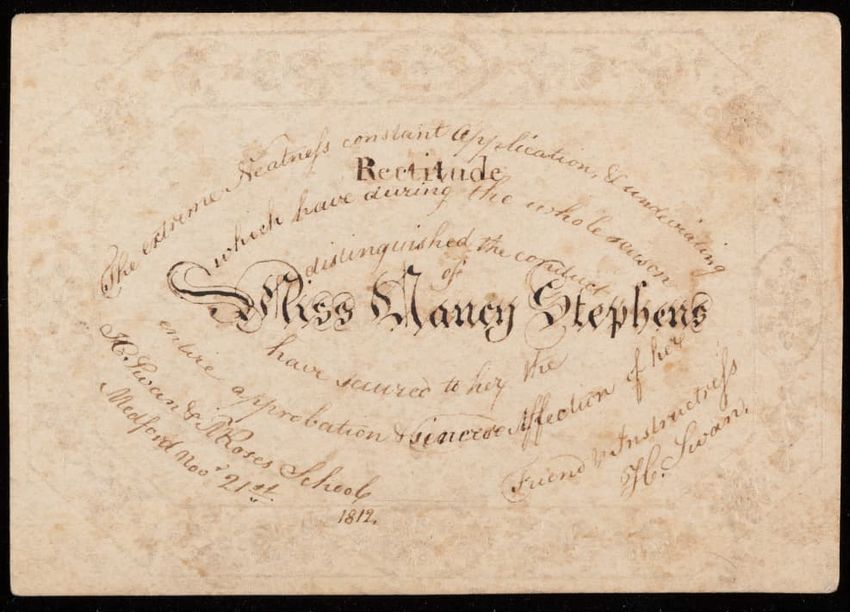 The extreme Neatness constant Application, & undeviating
Rectitude
which have during the whole season
distinguished the conduct
of
Miss Nancy Stephens
have secured to her the
entire approbation & sincere Affection of her
Friend & Instructress
H. Swan.
H. Swan & Roses School
Medford Nov.r 21st.
1812.